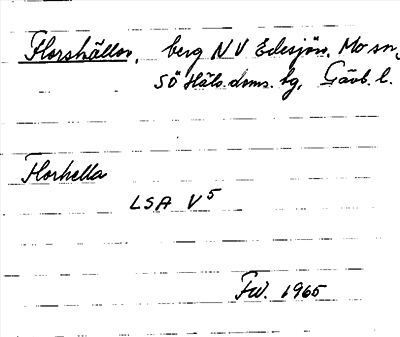 Florshällor, berg NV Edesjön, Mo sn,
SÖ Häls. doms. hg, Gävb. l.
Florhella
LSA V5
FW. 1965